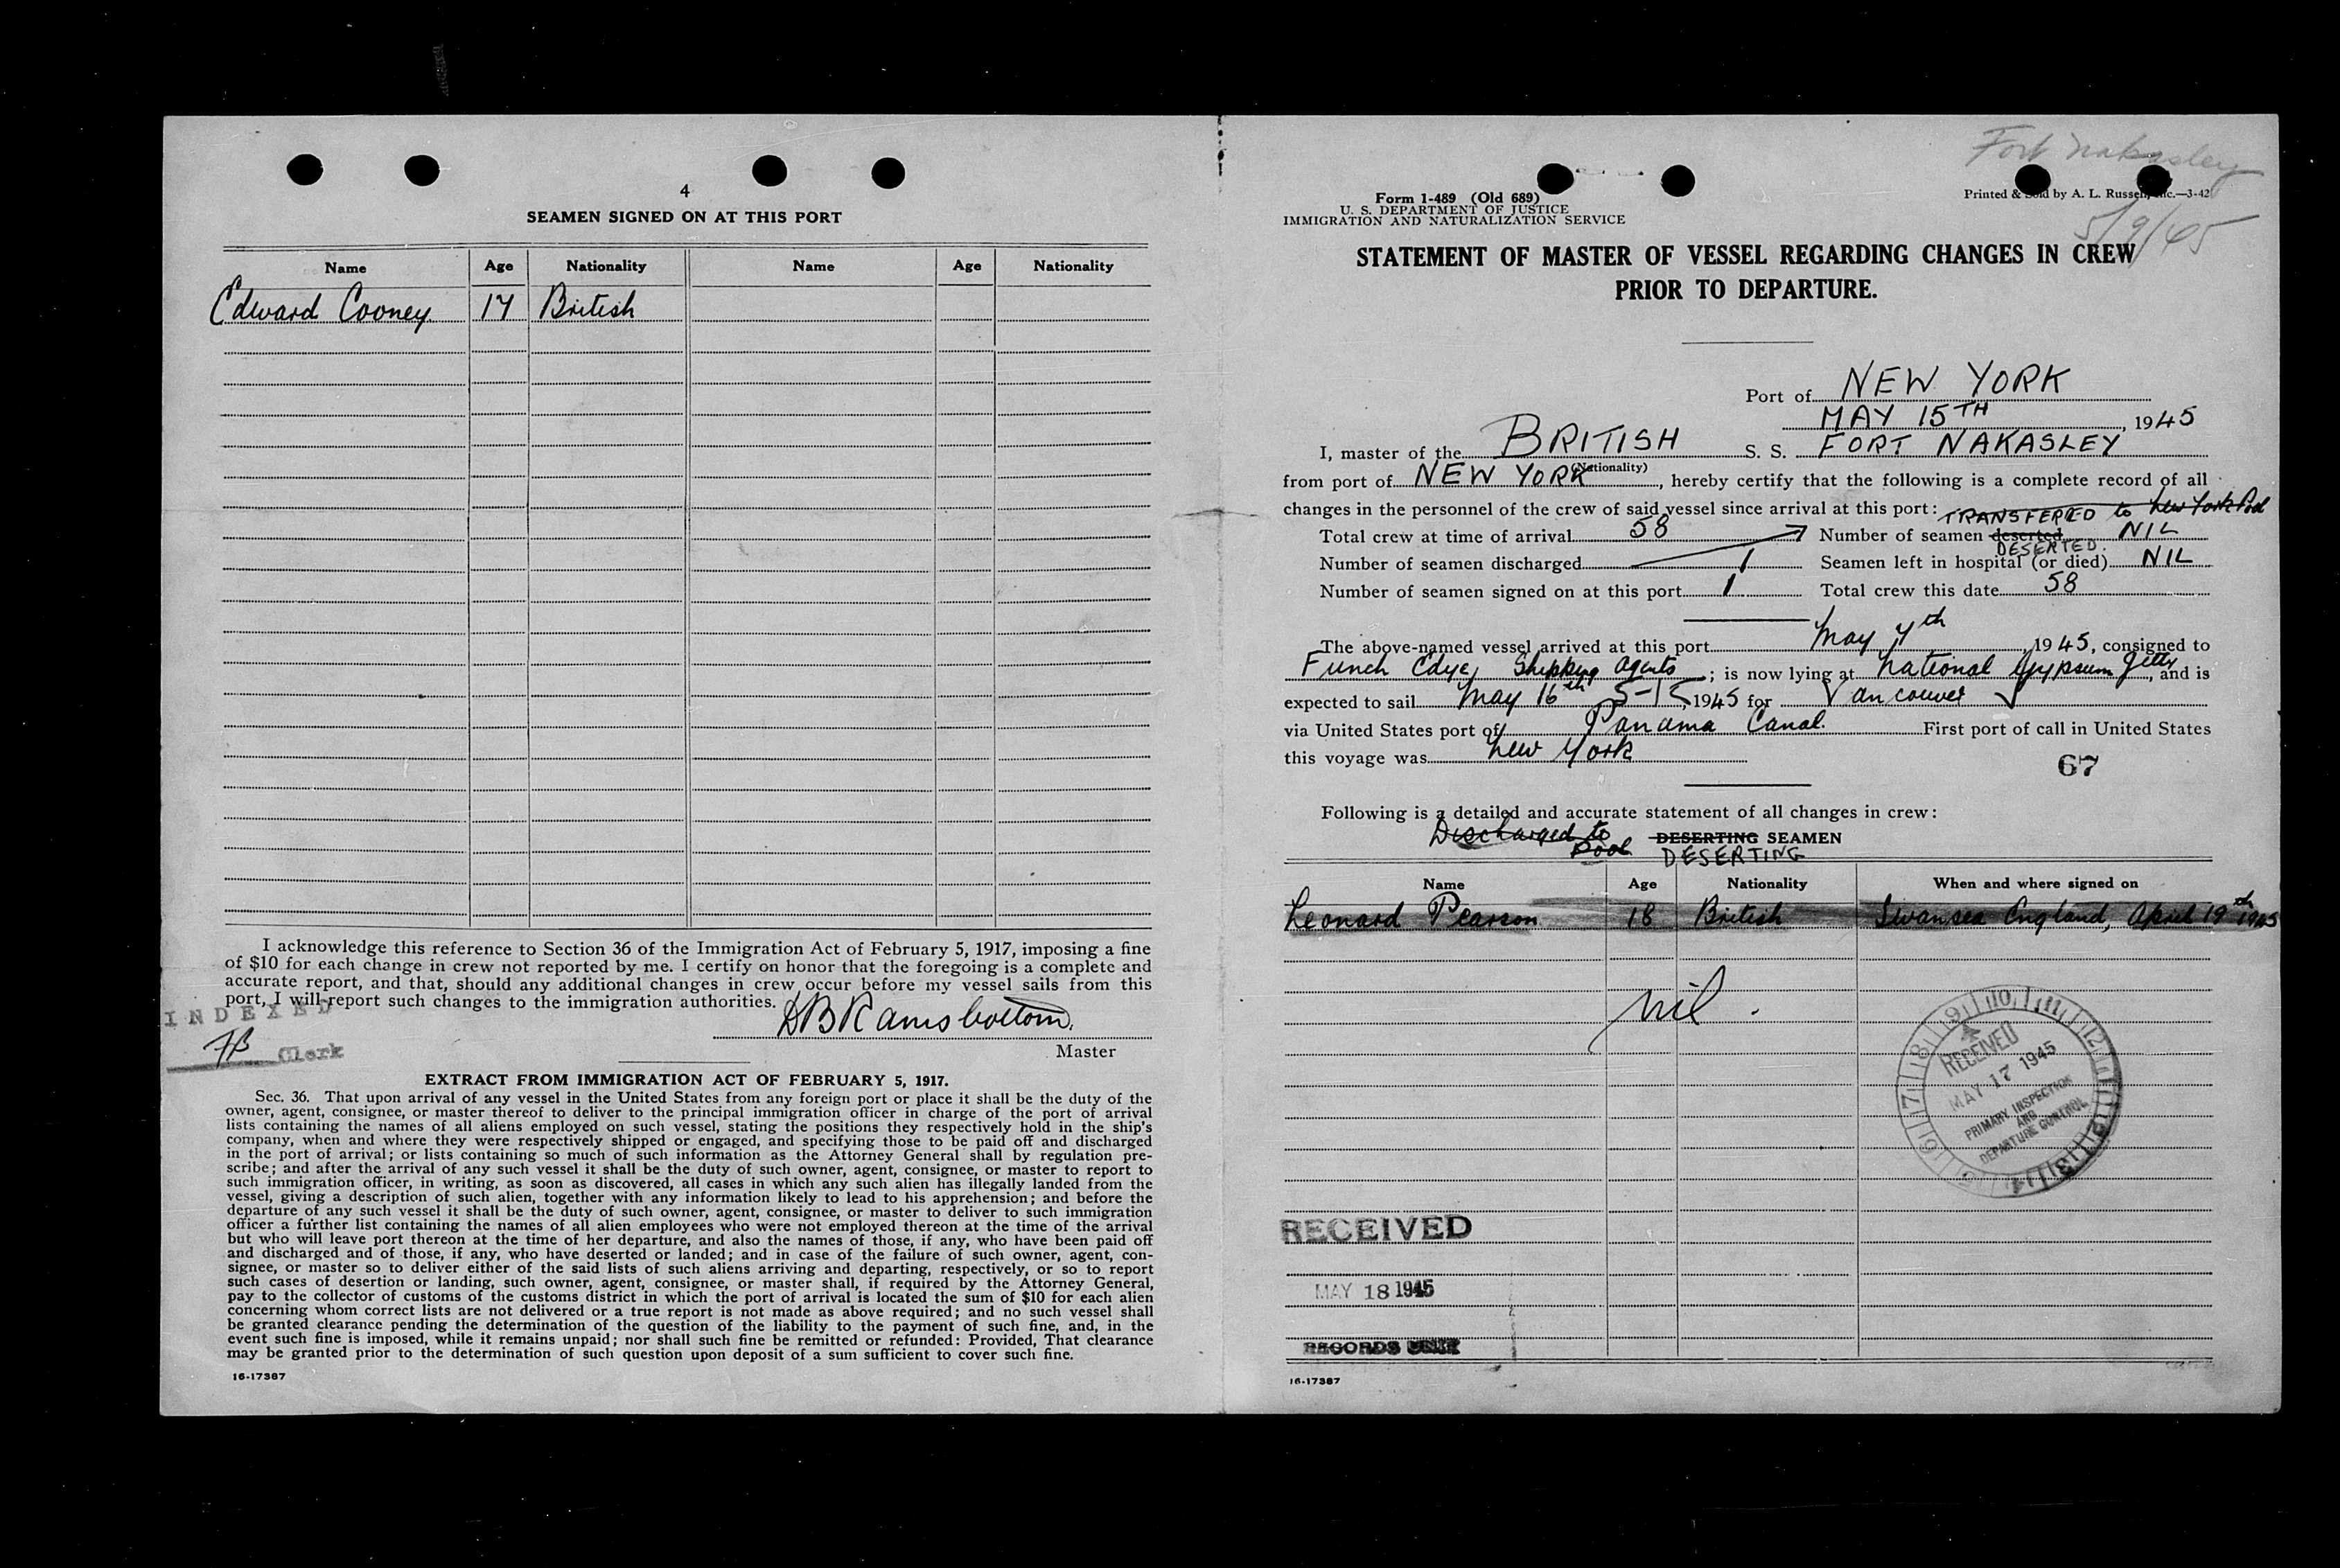 4
SEAMEN SIGNED ON AT THIS PORT
Name Age Nationality Name Age Nationality
Edward Cooney 17 British
I acknowledge this reference to Section 36 of the Immigration Act of February 5, 1917, imposing a fine
of $10 for each change in crew not reported by me. I certify on honor that the foregoing is a complete and
accurate report, and that, should any additional changes in crew occur before my vessel sails from this
port, I will report such changes to the immigration authorities.
INDEXED
DB Ramsbottom
FB Clerk
Master
EXTRACT FROM IMMIGRATION ACT OF FEBRUARY 5, 1917.
Sec. 36. That upon arrival of any vessel in the United States from any foreign port or place it shall be the duty of the
owner, agent, consignee, or master thereof to deliver to the principal immigration officer in charge of the port of arrival
lists containing the names of all aliens employed on such vessel, stating the positions they respectively hold in the ship's
company, when and where they were respectively shipped or engaged, and specifying those to be paid off and discharged
in the port of arrival; or lists containing so much of such information as the Attorney General shall by regulation pre-
scribe; and after the arrival of any such vessel it shall be the duty of such owner, agent, consignee, or master to report to
such immigration officer, in writing, as soon as discovered, all cases in which any such alien has illegally landed from the
vessel, giving a description of such alien, together with any information likely to lead to his apprehension; and before the
departure of any such vessel it shall be the duty of such owner, agent, consignee, or master to deliver to such immigration
officer a further list containing the names of all alien employees who were not employed thereon at the time of the arrival
but who will leave port thereon at the time of her departure, and also the names of those, if any, who have been paid off
and discharged and of those, if any, who have deserted or landed; and in case of the failure of such owner, agent, con-
signee, or master so to deliver either of the said lists of such aliens arriving and departing, respectively, or so to report
such cases of desertion or landing, such owner, agent, consignee, or master shall, if required by the Attorney General,
pay to the collector of customs of the customs district in which the port of arrival is located the sum of $10 for each alien
concerning whom correct lists are not delivered or a true report is not made as above required; and no such vessel shall
be granted clearance pending the determination of the question of the liability to the payment of such fine, and, in the
event such fine is imposed, while it remains unpaid; nor shall such fine be remitted or refunded: Provided, That clearance
may be granted prior to the determination of such question upon deposit of a sum sufficient to cover such fine.
16-17387
Fort Nakasley
5/9/45
Form 1-489 (Old 689)
U. S. DEPARTMENT OF JUSTICE
IMMIGRATION AND NATURALIZATION SERVICE
Printed & Sold by A. L. Russell, Inc.—3-42
STATEMENT OF MASTER OF VESSEL REGARDING CHANGES IN CREW
PRIOR TO DEPARTURE.
Port of NEW YORK
MAY 15TH, 1945
I, master of the BRITISH S. S. FORT NAKASLEY
(Nationality)
from port of NEW YORK, hereby certify that the following is a complete record of all
changes in the personnel of the crew of said vessel since arrival at this port:
TRANSFERRED to New York Pool
Total crew at time of arrival 58 Number of seamen deserted NIL
DESERTED.
Number of seamen discharged 1 Seamen left in hospital (or died) NIL
Number of seamen signed on at this port 1 Total crew this date 58
The above-named vessel arrived at this port May 7th, 1945, consigned to
Funch Edye, Shipping Agents; is now lying at National Gypsum Jetty, and is
expected to sail May 16th 5-15, 1945 for Vancouver
via United States port of Panama Canal. First port of call in United States
this voyage was New York
67
Following is a detailed and accurate statement of all changes in crew:
Discharged to Pool
DESERTING SEAMEN
DESERTING
Name Age Nationality When and where signed on
Leonard Pearson 18 British Swansea England, April 19th 1945
Nil.
RECEIVED
MAY 17 1945
PRIMARY INSPECTION
AND
DEPARTURE CONTROL
RECEIVED
MAY 18 1945
RECORDS UNIT
16-17387